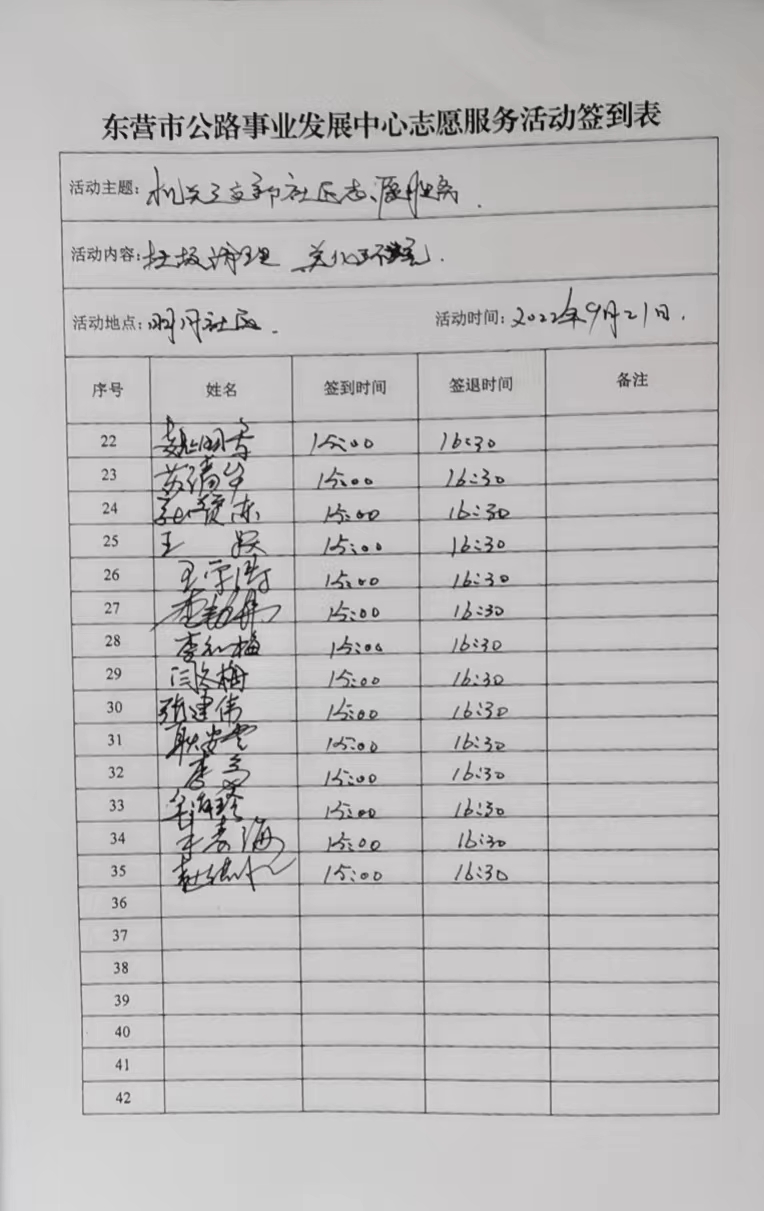 东营市公路事业发展中心志愿服务活动签到表
活动主题: 机关三支部社区志愿服务.
活动内容: 垃圾清理 美化环境.
活动地点: 明月社区. 活动时间: 2022年9月21日.
序号 姓名 签到时间 签退时间 备注
22 15:00 16:30
23 苏清华 15:00 16:30
24 15:00 16:30
25 王 15:00 16:30
26 王学 15:00 16:30
27 15:00 16:30
28 李和梅 15:00 16:30
29 闫冬梅 15:00 16:30
30 张建伟 15:00 16:30
31 耿安 15:00 16:30
32 李 15:00 16:30
33 15:00 16:30
34 王春海 15:00 16:30
35 赵 15:00 16:30
36
37
38
39
40
41
42